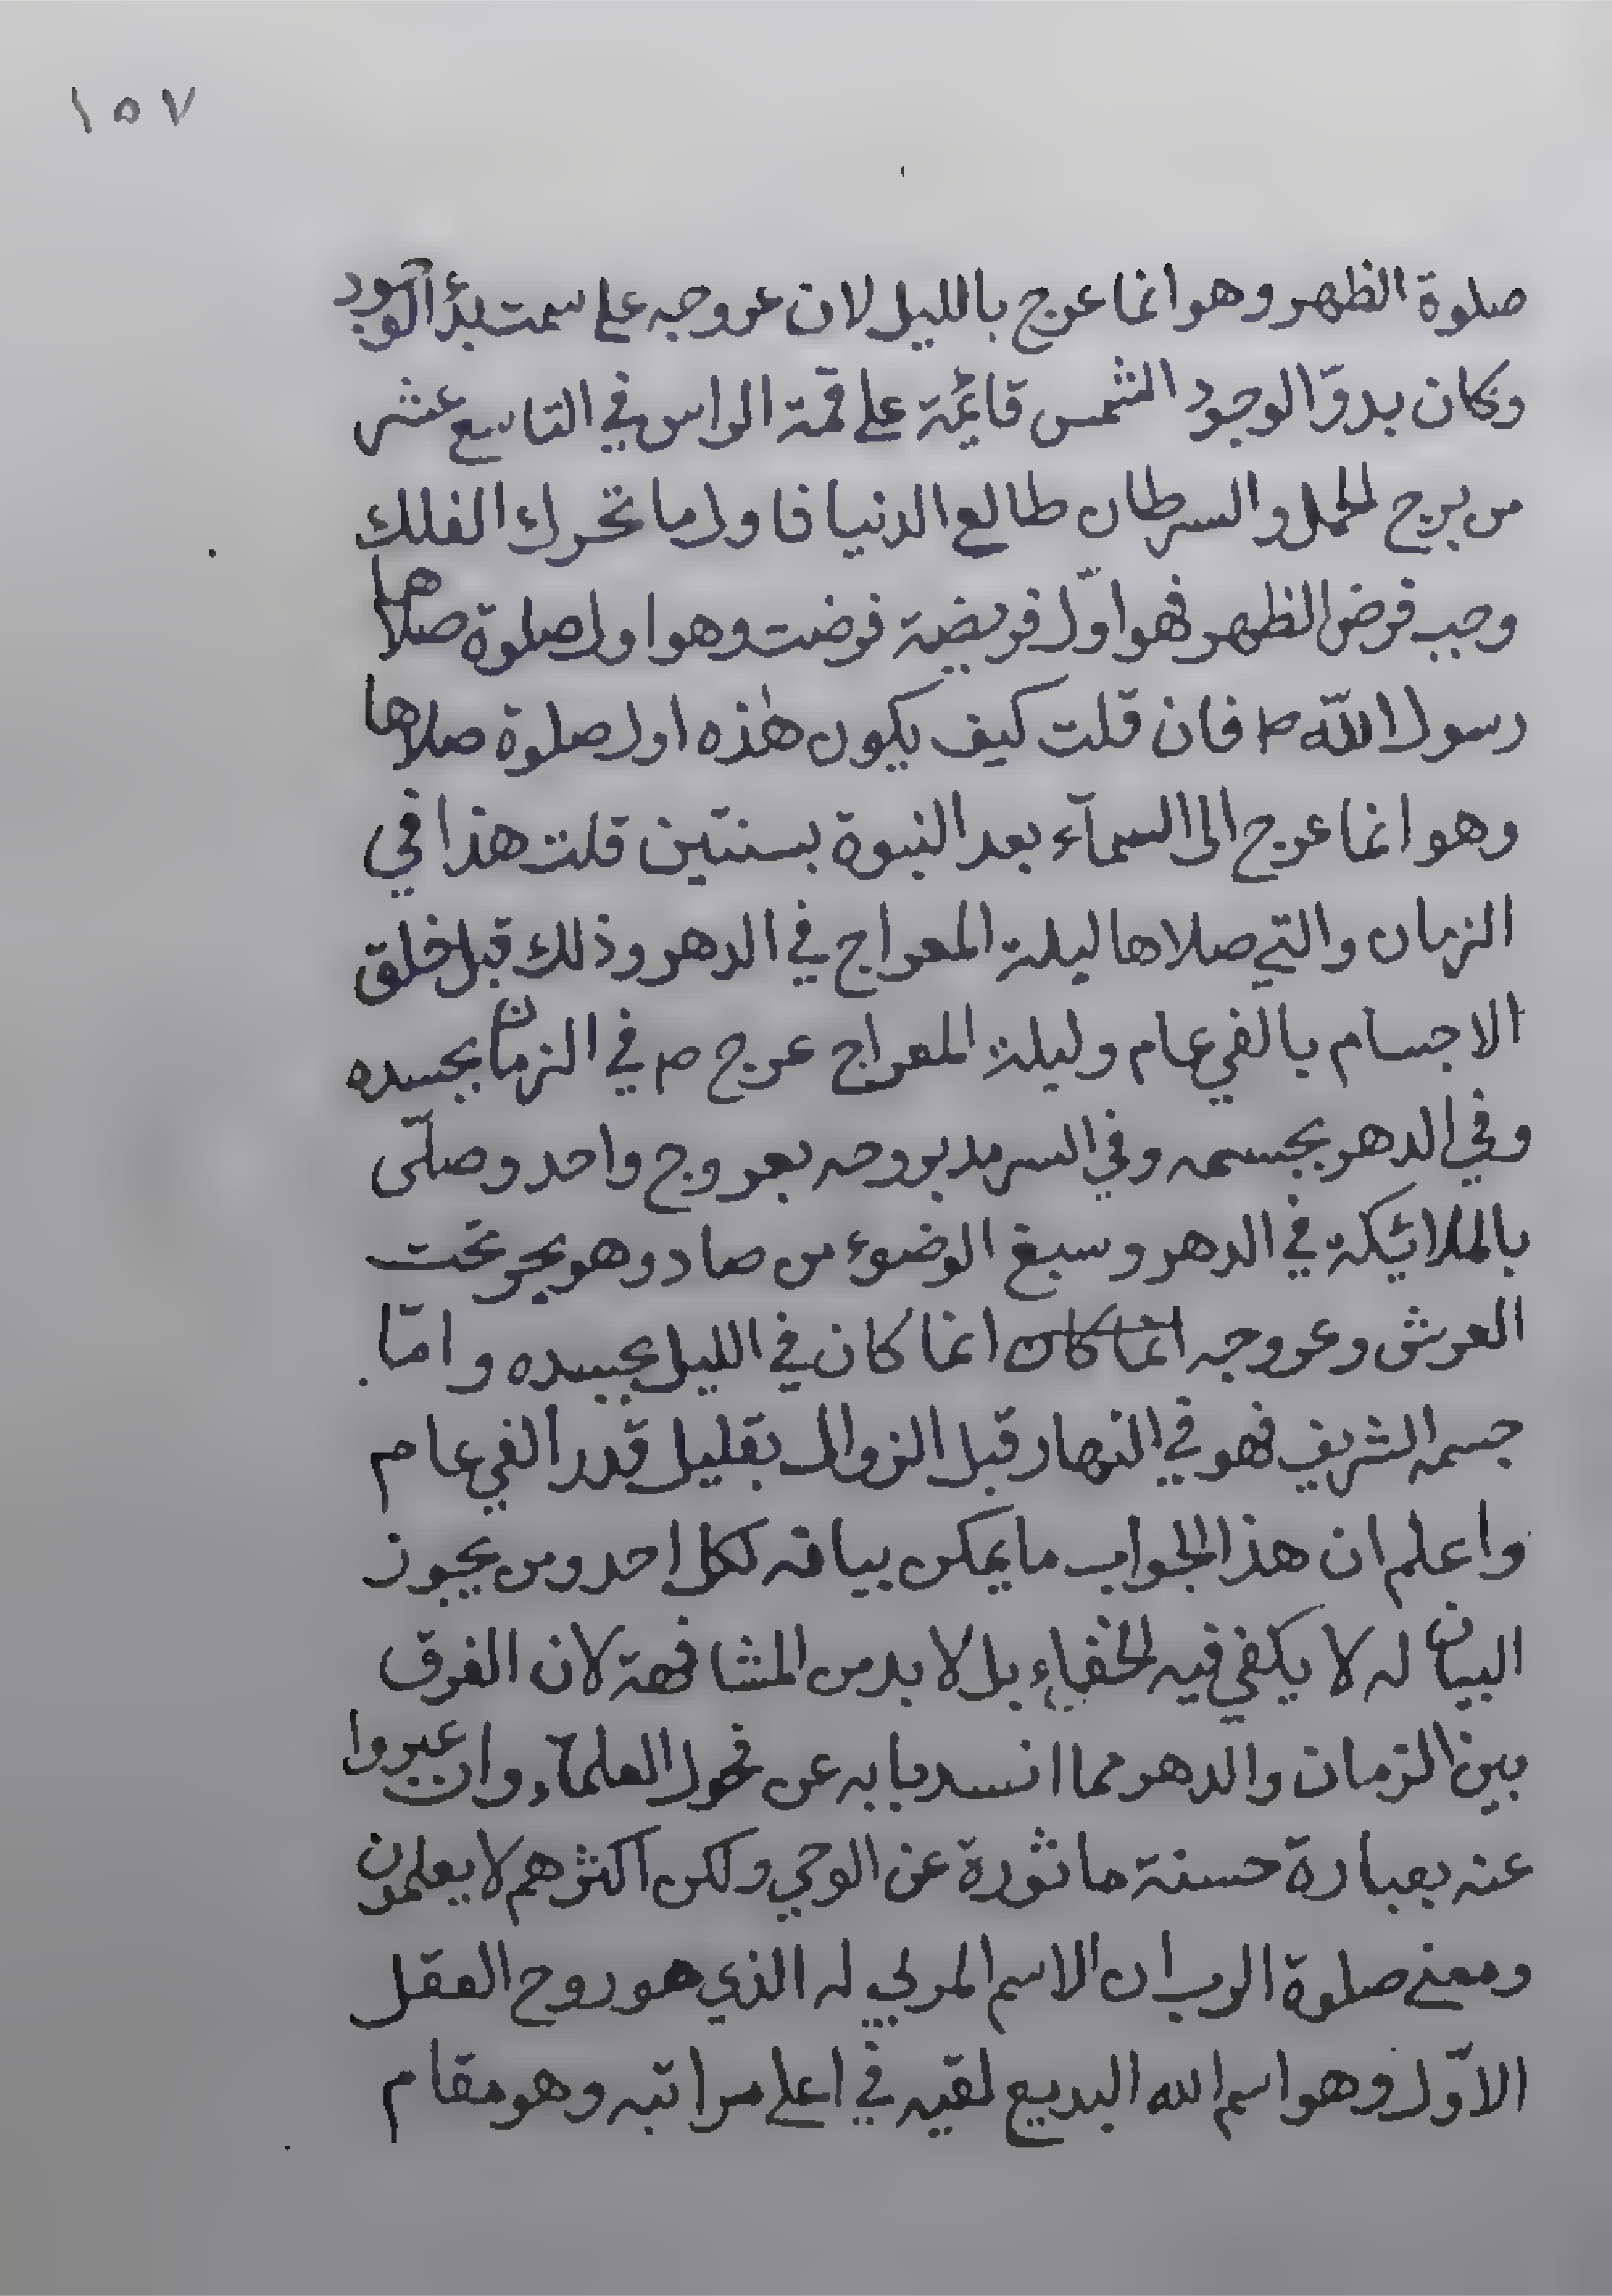 ١٥٧
صلوة الظهر وهو انما عرج بالليل لان عروجه على سمت بدأ الوجود
وكان بدوّ الوجود الشمس قائمة على قمة الراس في التاسع عشر
من برج الحمل والسرطان طالع الدنيا فاول ما تحرك الفلك
وجب فرض الظهر فهو اوّل فريضة فرضت وهو اول صلوة صلاها
رسول اللّه ص فان قلت كيف يكون هٰذه اول صلوة صلاها
وهو انما عرج الى السمآء بعد النبوة بسنتين قلت هذا في
الزمان والتي صلاها ليلة المعراج في الدهر وذلك قبل خلق
الاجسام بالفي عام وليلة المعراج عرج ص في الزمان بجسده
وفي الدهر بجسمه وفي السرمد بروحه بعروج واحد وصلّى
بالملائكة في الدهر وسبغ الوضوء من صاد وهو بحر تحت
العرش وعروجه انما كان انما كان في الليل بجسده وامّا
جسمه الشريف فهو في النهار قبل الزوال بقليل قدر الفي عام
واعلم ان هذا الجواب ما يمكن بيانه لكل احد ومن يجوز
البيان له لا يكفي فيه الخفاء بل لا بد من المشافهة لان الفرق
بين الزمان والدهر مما انسد بابه عن فحول العلمآء وان عبروا
عنه بعبارة حسنة ماثورة عن الوحي ولكن اكثرهم لا يعلمون
ومعنى صلوة الرب ان الاسم المربي له الذي هو روح العقل
الاوّل وهو اسم الله البديع لقيه في اعلى مراتبه وهو مقام